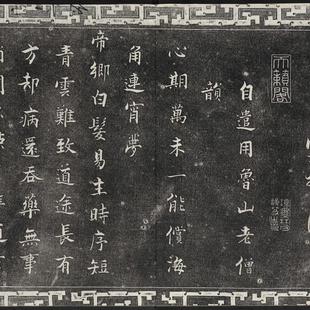 天籟閣
自遣用魯山老僧
韻
心期萬未一能償海
角連宵夢
帝鄉白髮易生時序短
青雲難致道途長有
方却病還吞藥無事